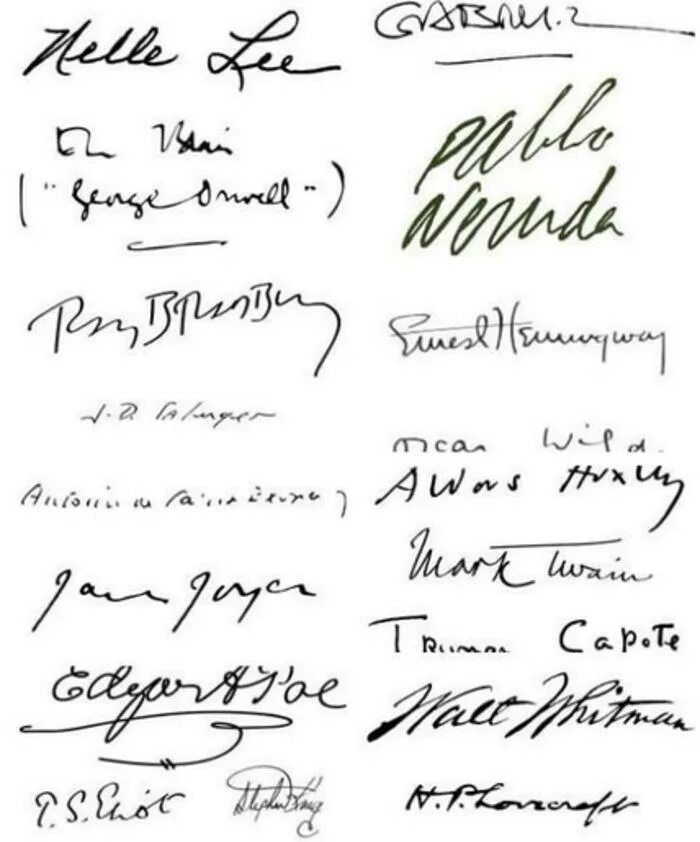 Nelle Lee
Eric Blair
("George Orwell")
Ray Bradbury
J. D. Salinger
Antoine de Saint Exupéry
James Joyce
Edgar A Poe
T. S. Eliot
Stephen King
GABRIEL
Pablo
Neruda
Ernest Hemingway
Oscar Wilde
Aldous Huxley
Mark Twain
Truman Capote
Walt Whitman
H. P. Lovecraft